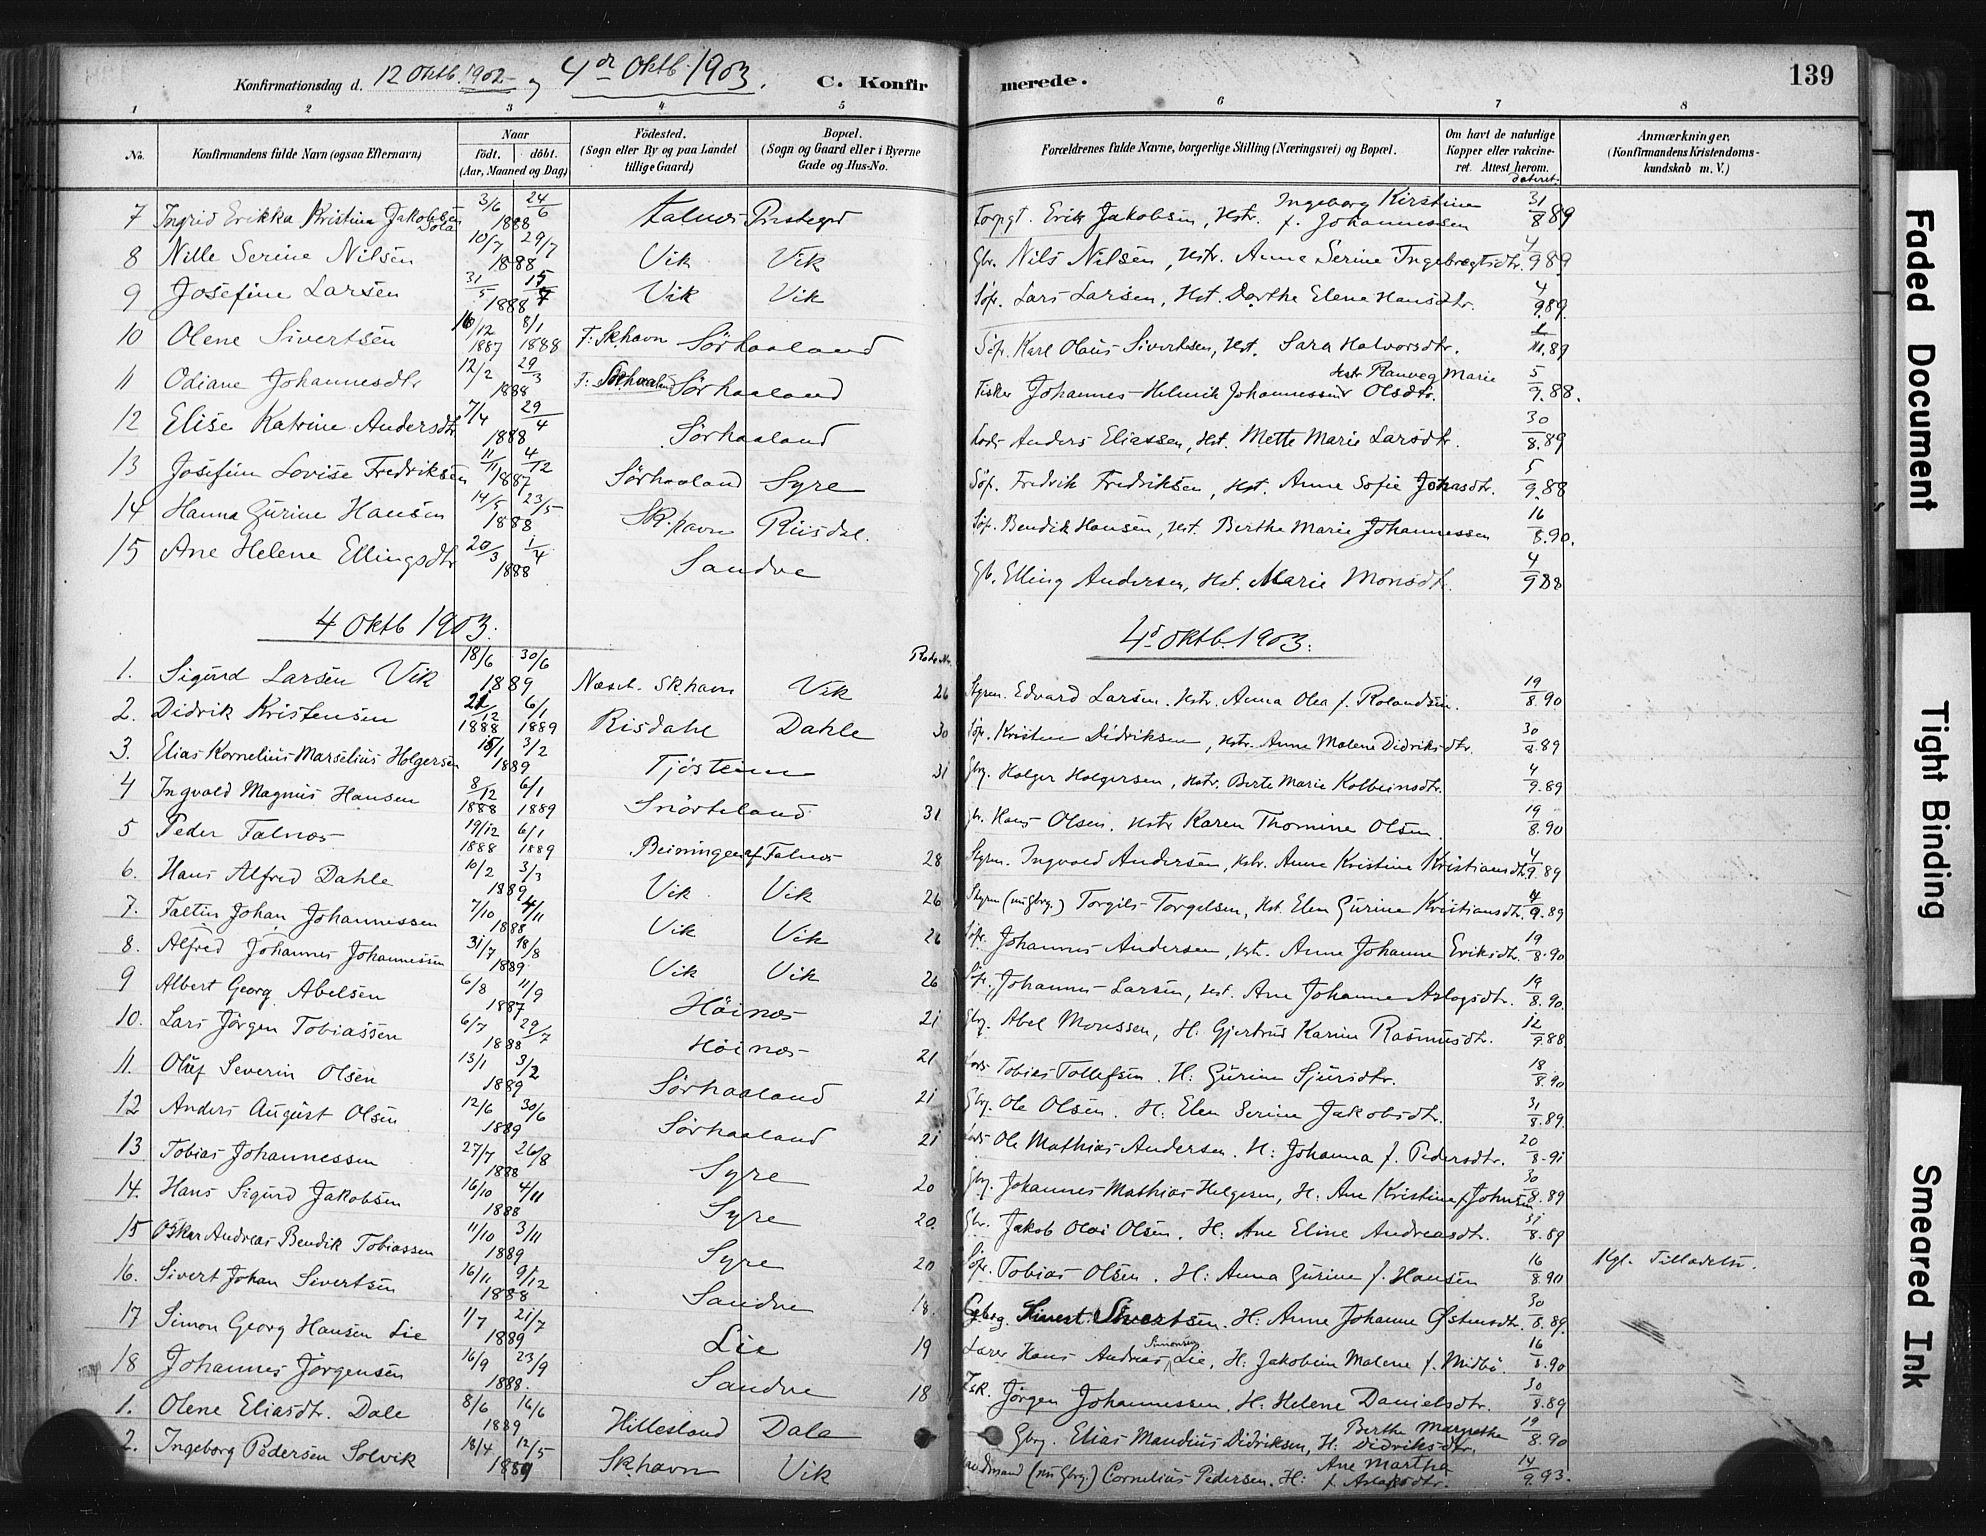 Konfirmationsdag d. 12 Oktb. 1902 og 4de Oktb 1903. C. Konfirmerede. 139
1 2 3 4 5 6 7 8
No. Konfirmandens fulde Navn (ogsaa Efternavn) Naar født. døbt. (Aar, Maaned og Dag) Fødested. (Sogn eller By og paa Landet tillige Gaard) Bopæl. (Sogn og Gaard eller i Byerne Gade og Hus-No. Forældrenes fulde Navne, borgerlige Stilling (Næringsvei) og Bopæl. Om havt de naturlige Kopper eller vaccineret. Attest herom. dateret. Anmærkninger. (Konfirmandens Kristendomskundskab m. V.)
7 Ingrid Erikka Kristina Jakobsen 3/6 24/6 1888 Falnes Prstegrd Erik Jakobsen, Hstr. Ingeborg Kirstine f. Johannessen 31/8 89
8 Nille Serine Nilsen 10/7 29/7 1888 Vik Vik Gbr. Nils Nilsen, Hstr. Anna Serine Ingebregtsdtr. 4/9 89
9 Josefine Larsen 31/5 15/7 1888 Vik Vik Søf. Lars Larsen, Hst. Dorthe Elene Hansdtr. 4/9 89.
10 Olene Sivertsen 16/12 1887 8/1 1888 F: Skhavn Sørhaaland Søf. Karl Olaus Sivertsen, Hst. Sara Halvorsdtr. 89
11 Odiane Johannesdtr 12/2 29/3 1888 F: Sørhaaland Sørhaaland Fisker Johannes Helmik Johannessen Hstr Ranveg Marie Olsdtr. 5/9. 88.
12 Elise Katrine Andersdtr 7/4 29/4 1888 Sørhaaland Lods Anders Eliassen, Hst. Mette Marie Larsdtr. 30/8. 89
13 Josefine Lovise Fredriksen 11/11 4/12 1887 Sørhaaland Syre Søf. Fredrik Fredriksen, Hst. Anne Sofie Johasdtr. 5/9. 88
14 Hanna Gurine Hansen 14/5 23/5 1888 Sk.havn Riisdal. Søf. Bendik Hansen, Hst. Berthe Marie Johannessen 16/8. 90.
15 Ane Helene Ellingsdtr 20/3 1/4 1888 Sandve Gb. Elling Andersen, Hst. Marie Monsdtr. 4/9 88
4 Oktb 1903. 4d Oktb. 1903.
Rode No.
1. Sigurd Larsen Vik 18/6 30/6 1889 Næset. Skhavn Vik 26 Styrm. Edvard Larsen. Hstr. Anna Olea f. Rolandsen. 19/8. 90
2. Didrik Kristensen 21/12 1888 6/1 1889 Risdahl Dahle 30 Søf. Kristen Didriksen, Hstr. Anne Malene Didriksdtr. 30/8. 89
3. Elias Kornelius Marselius Holgersen 15/1 3/2 1889 Tjøsteim 31 Gbrg. Holger Holgersen, Hstr. Berte Marie Kolbeinsdtr. 4/9. 89
4 Ingvald Magnus Hansen 8/12 1888 6/1 1889 Snørteland 31 gb. Hans Olsen. Hstr Karen Thomine Olsen. 19/8. 90
5 Peder Falnes 19/12 1888 6/1 1889 Beiningen af Falnes 28 Styrm. Ingvald Andersen, Hstr. Anne Kristine Kristiansdtr. 4/9. 89
6. Hans Alfred Dahle 10/2 3/3 1889 Vik Vik 26 Styrm (nu Gbrg.) Torgils Torgelsen, Hst. Elen Gurine Kristiansdtr. 4/9. 89
7. Faltin Johan Johannessen 7/10 4/11 1888 Vik Vik 26 Søf. Johannes Andersen, Hst. Anne Johanne Eriksdtr. 19/8. 90
8. Alfred Johannes Johannessen 31/7 18/8 1889 Vik Vik 26 Søf. Johannes Larsen, Hst. Ane Johanne Aslagsdtr. 19/8. 90.
9 Albert Georg Abelsen 6/8 11/9 1887 Høines 21 Gbrg. Abel Monssen, H: Gjertrud Karine Rasmusdtr. 12/9. 88
10. Lars Jørgen Tobiassen 6/7 29/7 1888 Høines 21 Lods Tobias Tollefsen. H: Gurine Sjursdtr. 18/8. 90
11. Oluf Severin Olsen 13/1 3/2 1889 Sørhaaland 21 Gbrg. Ole Olsen. H: Elen Serine Jakobsdtr. 31/8. 89.
12 Anders August Olsen 12/6 30/6 1889 Sørhaaland 21 Lods Ole Mathias Andersen. H: Johanna f. Pedersdtr. 20/8. 91
13 Tobias Johannessen 27/7 26/8 1888 Syre 20 Gbrg. Johannes Mathias Helgesen, H: Ane Kristine f. Johnsen 30/8. 89
14. Hans Sigurd Jakobsen 16/10 4/11 1888 Syre 20. Gbr. Jakob Olai Olsen. H: Ane Eline Andreasdtr. 31/8. 89
15 Oskar Andreas Bendik Tobiassen 11/10 3/11 1889 Syre 20 Søf. Tobias Olsen. H: Anna Gurine f. Hansen 16/8. 90 Kgl. Tilladelse.
16. Sivert Johan Sivertsen 16/11 9/12 1888 Sandve 18. Gbrg. Sivert Sivertsen. H: Anne Johanne Østensdtr. 30/8. 89.
17 Simon Georg Hansen Lie 1/7 21/7 1889 Lie 19 Lærer Hans Andreas Simonsen Lie, H: Jakobine Malene f. Midbø. 16/8. 90
18 Johannes Jørgensen 16/9 23/9 1888. Sandve 18 Fsk. Jørgen Johannessen, H: Helene Danielsdtr. 30/8. 89
1. Olene Eliasdtr. Dale 8/6 16/6 1889 Hillesland Dale Gbrg. Elias Mandius Didriksen, H: Berthe Margrethe Didriksdtr. 19/8. 90
2. Ingeborg Pedersen Solvik 18/4 12/5 1889 Skhavn Vik (nu Gbrg.) Cornelius Pedersen. H: Ane Martha f. Aslaksdtr. 14/9. 93.
Faded Document
Tight Binding
Smeared Ink